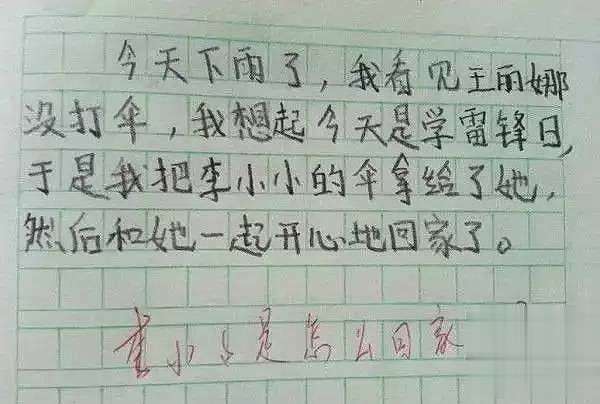 今天下雨了，我看见王丽娜
没打伞，我想起今天是学雷锋日，
于是我把李小小的伞拿给了她，
然后和她一起开心地回家了。
李小小是怎么回家